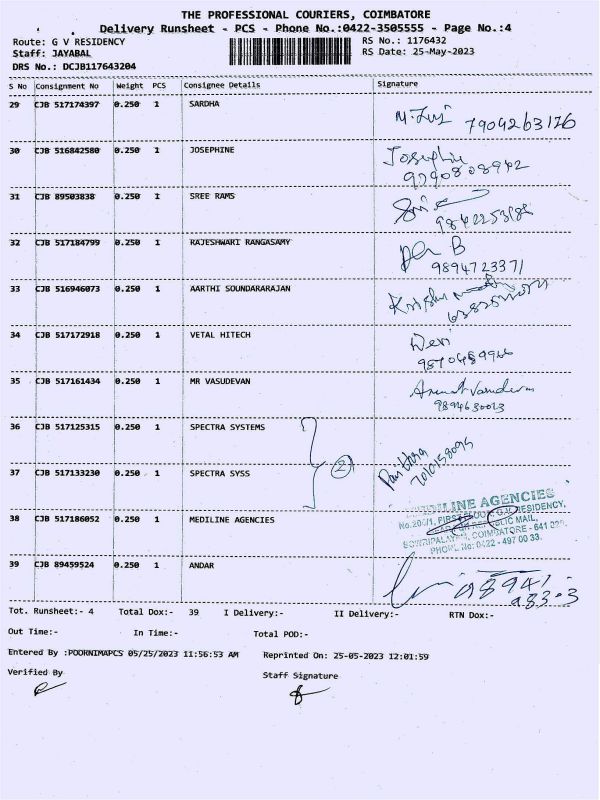 THE PROFESSIONAL COURIERS, COIMBATORE
Delivery Runsheet - PCS - Phone No.:0422-3505555 - Page No.:4
Route: G V RESIDENCY
RS No.: 1176432
Staff: JAYABAL
RS Date: 25-May-2023
DRS No.: DCJB117643204
S No Consignment No Weight PCS Consignee Details Signature
29 CJB 517174397 0.250 1 SARDHA
7904263176
30 CJB 516842580 0.250 1 JOSEPHINE
Josephine
9790808942
31 CJB 89503838 0.250 1 SREE RAMS
32 CJB 517184799 0.250 1 RAJESHWARI RANGASAMY
B
9894723371
33 CJB 516946073 0.250 1 AARTHI SOUNDARARAJAN
34 CJB 517172918 0.250 1 VETAL HITECH
Devi
35 CJB 517161434 0.250 1 MR VASUDEVAN
9894630013
36 CJB 517125315 0.250 1 SPECTRA SYSTEMS
2
37 CJB 517133230 0.250 1 SPECTRA SYSS
38 CJB 517186052 0.250 1 MEDILINE AGENCIES
LINE AGENCIES
RESIDENCY,
COIMBATORE - 641
PHONE No: 0422 - 497 00 33.
39 CJB 89459524 0.250 1 ANDAR
Tot. Runsheet:- 4 Total Dox:- 39 I Delivery:- II Delivery:- RTN Dox:-
Out Time:- In Time:- Total POD:-
Entered By :POORNIMAPCS 05/25/2023 11:56:53 AM Reprinted On: 25-05-2023 12:01:59
Verified By
Staff Signature